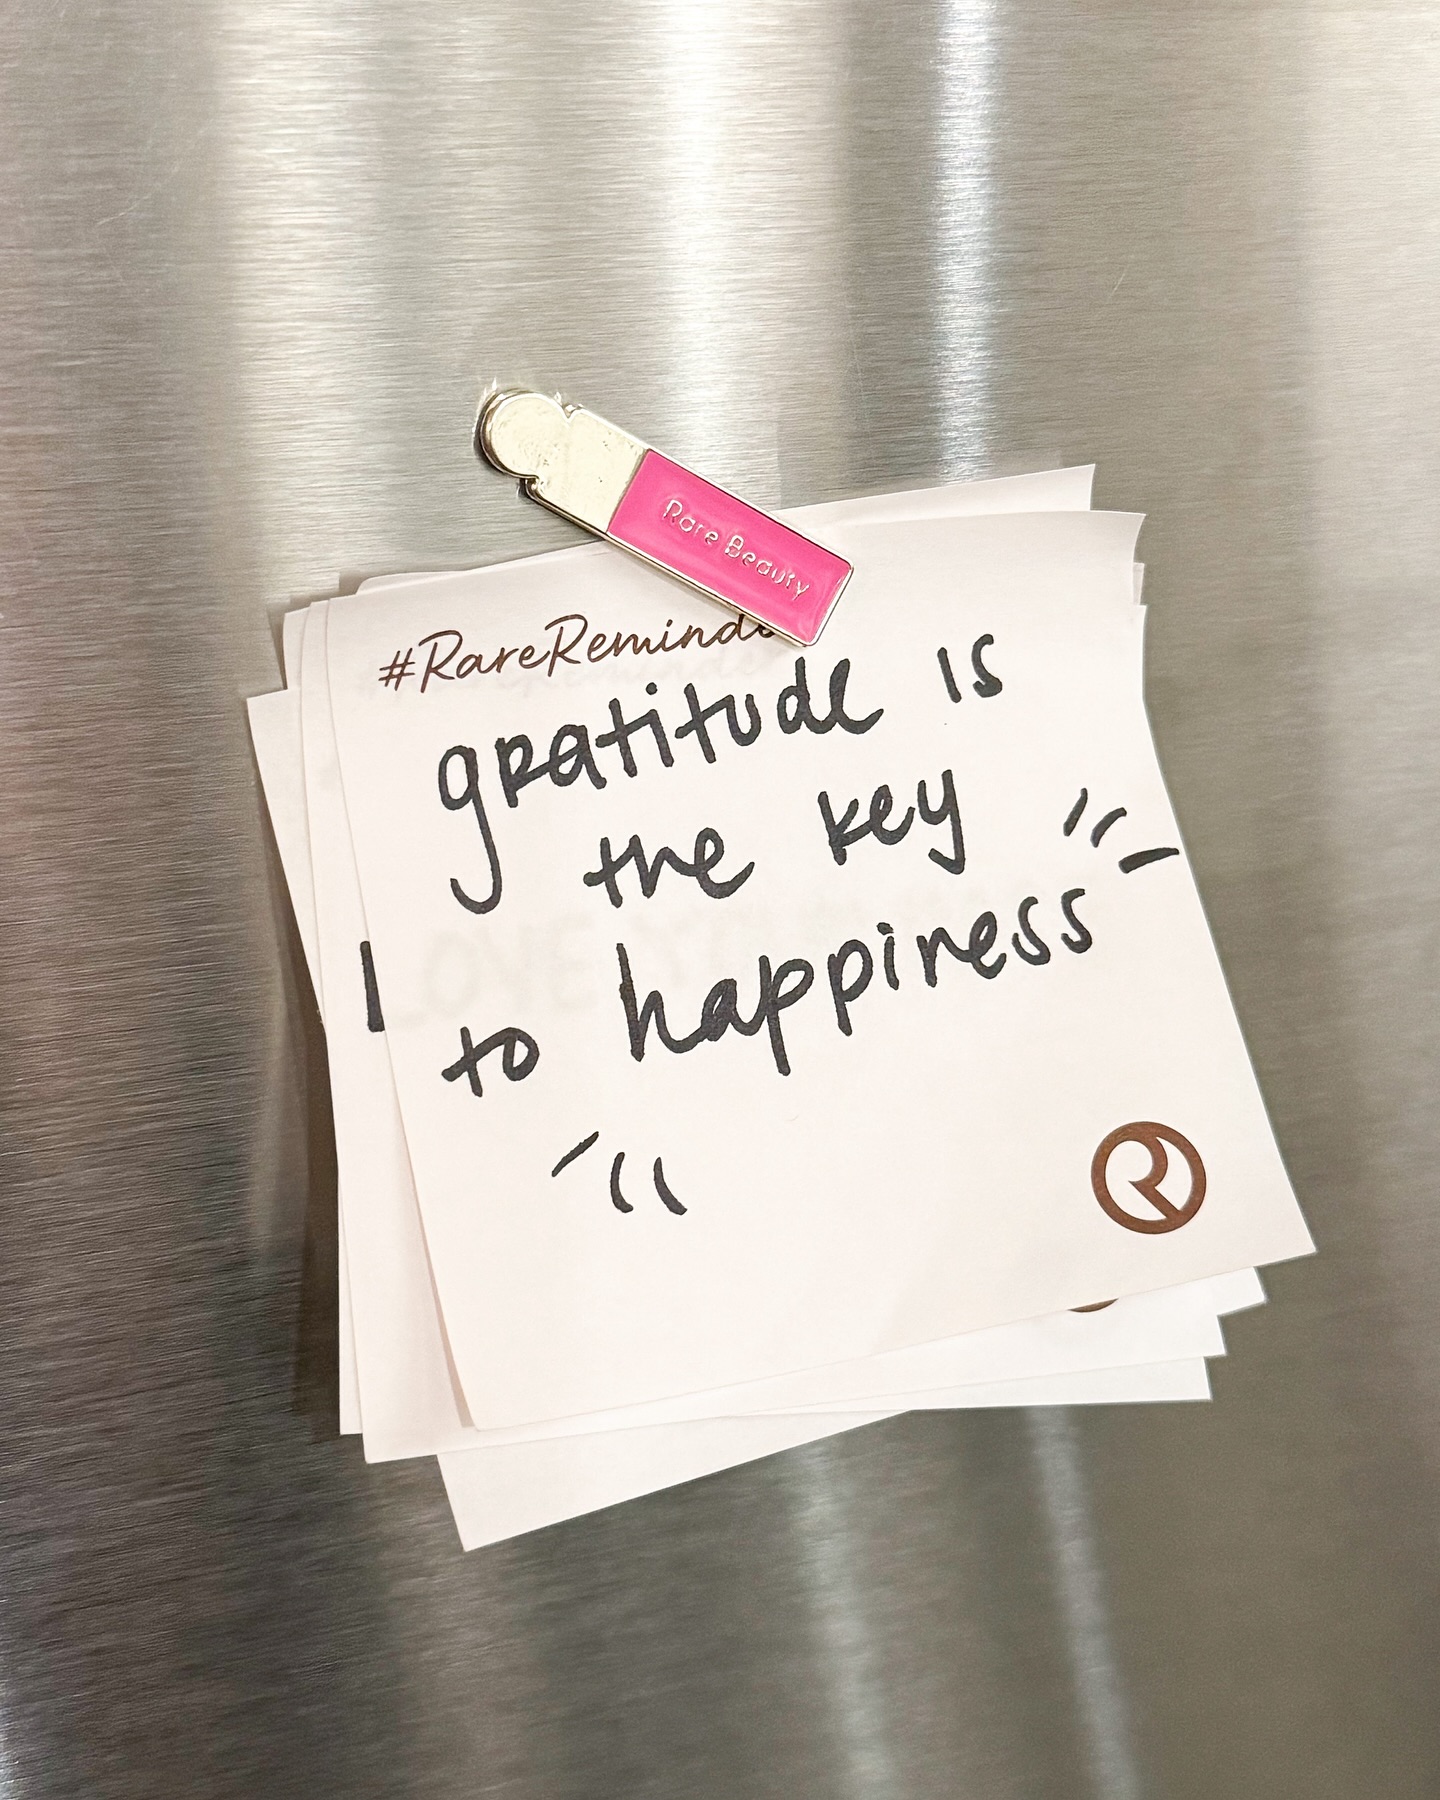 Rare Beauty
#RareReminde
gratitude is
the key
to happiness
LOVE
R